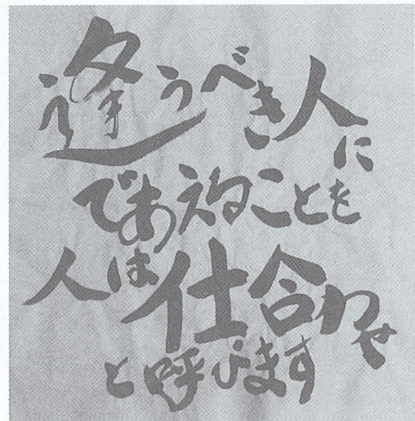 逢うべき人に
であえることを
人は仕合わせ
と呼びます